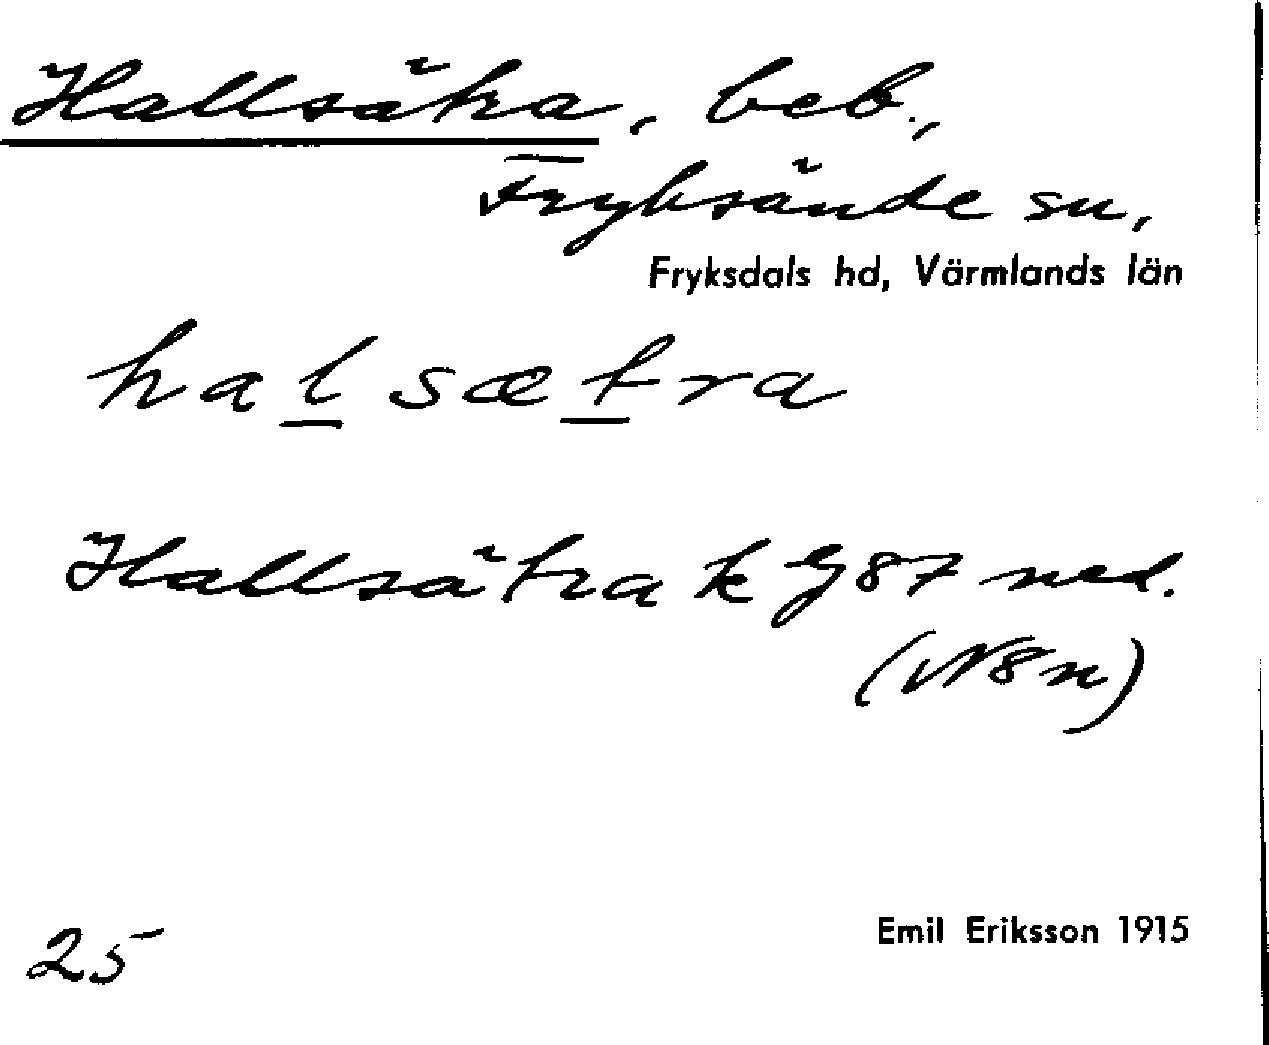 Hallsätra, beb.,
Fryksände sn,
Fryksdals hd, Värmlands län
halsætra
Hallsätra k G 87 ned.
(N8n)
25
Emil Eriksson 1915